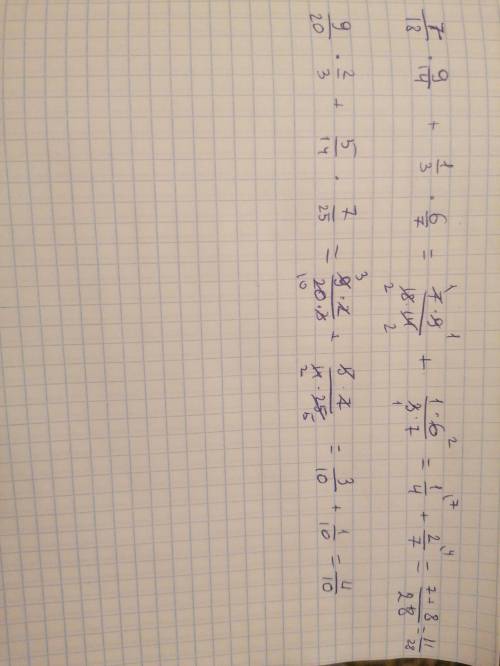 7/18 · 9/14 + 1/3 · 6/7 = 7·9/18·14 + 1·6/3·7 = 1/4 + 2/7 = 7+8/28 = 11/28
9/20 · 2/3 + 5/14 · 7/25 = 9·2/20·3 + 5·7/14·25 = 3/10 + 1/10 = 4/10